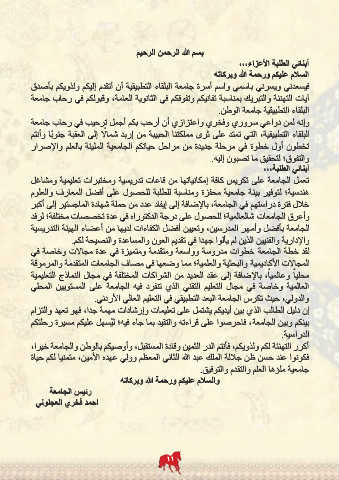 بسم الله الرحمن الرحيم
أبنائي الطلبة الأعزاء،،،
السلام عليكم ورحمة الله وبركاته
فيسعدني ويسرني باسمي وباسم أسرة جامعة البلقاء التطبيقية أن أتقدم إليكم ولذويكم بأصدق
آيات التهنئة والتبريك بمناسبة نجاحكم وتفوقكم في الثانوية العامة، وقبولكم في رحاب جامعة
البلقاء التطبيقية جامعة الوطن.
وإنه لمن دواعي سروري وفخري واعتزازي أن أرحب بكم أجمل ترحيب في رحاب جامعة
البلقاء التطبيقية، التي تمتد على ثرى مملكتنا الحبيبة من إربد شمالا إلى العقبة جنوبا وأنتم
تخطون أول خطوة في مرحلة جديدة من مراحل حياتكم الجامعية المليئة بالعلم والإصرار
والتفوق؛ لتحقيق ما تصبون إليه.
أبنائي الطلبة،،،
تعمل الجامعة على تكريس كافة إمكانياتها من قاعات تدريسية ومختبرات تعليمية ومشاغل
هندسية؛ لتوفير بيئة جامعية محفزة ومناسبة للطلبة للحصول على أفضل المعارف والعلوم
خلال فترة دراستهم في الجامعة، بالإضافة إلى إيفاد عدد من حملة شهادة الماجستير إلى أكبر
وأعرق الجامعات العالمية؛ للحصول على درجة الدكتوراه في عدة تخصصات مختلفة؛ لرفد
الجامعة بأفضل وأمهر المدرسين، وتعيين أفضل الكفاءات لديها من أعضاء الهيئة التدريسية
والإدارية والفنيين الذين لم يألوا جهدا في تقديم العون والمساعدة والنصيحة لكم.
لقد خطة الجامعة خطوات مدروسة وواسعة ومتقدمة ومتميزة في عدة مجالات وخاصة في
المجالات الأكاديمية والبحثية والعلمية؛ مما وضعها في مصاف الجامعات المتقدمة والمرموقة
محليا وعالميا، بالإضافة إلى عقد العديد من الشراكات المختلفة في مجال النماذج التعليمية
العالمية وخاصة في مجال التعليم التقني الذي تتفرد فيه الجامعة على المستويين المحلي
والدولي، حيث تكرس الجامعة البعد التطبيقي في التعليم العالي الأردني.
إن دليل الطالب الذي بين أيديكم يشتمل على تعليمات وإرشادات مهمة جدا، فهو تعهد والتزام
بينكم وبين الجامعة، فاحرصوا على قراءته والتقيد بما جاء فيه؛ ليسهل عليكم مسيرة رحلتكم
الدراسية.
أكرر التهنئة لكم ولذويكم، فأنتم الدر الثمين وقادة المستقبل، وأوصيكم بالوطن والجامعة خيرا،
فكونوا عند حسن ظن جلالة الملك عبد الله الثاني المعظم وولي عهده الأمين، متمنيا لكم حياة
جامعية ملؤها العلم والتقدم والتوفيق.
والسلام عليكم ورحمة الله وبركاته
رئيس الجامعة
أحمد فخري العجلوني